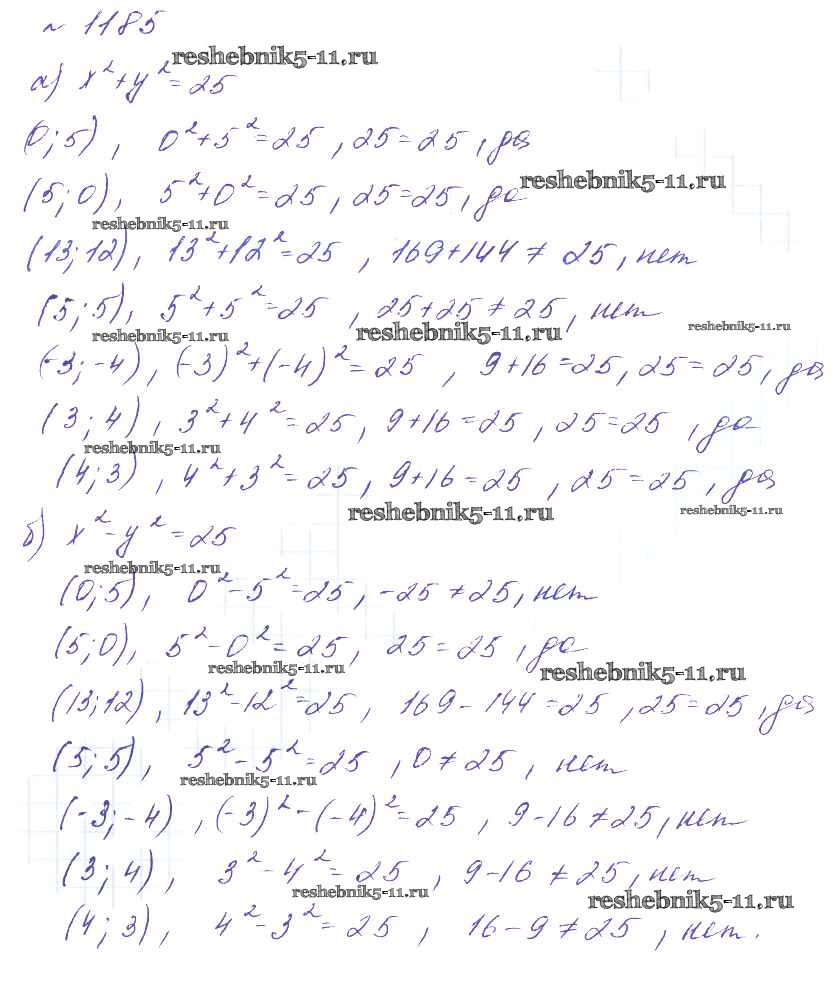 № 1185
reshebnik5-11.ru
а) x²+y²=25
(0; 5), 0²+5²=25, 25=25, да
(5; 0), 5²+0²=25, 25=25, да
reshebnik5-11.ru
reshebnik5-11.ru
(13; 12), 13²+12²=25, 169+144≠25, нет
(5; 5), 5²+5²=25, 25+25≠25, нет
reshebnik5-11.ru
reshebnik5-11.ru
reshebnik5-11.ru
(-3; -4), (-3)²+(-4)²=25, 9+16=25, 25=25, да
(3; 4), 3²+4²=25, 9+16=25, 25=25, да
reshebnik5-11.ru
(4; 3), 4²+3²=25, 9+16=25, 25=25, да
reshebnik5-11.ru
reshebnik5-11.ru
б) x²-y²=25
reshebnik5-11.ru
(0; 5), 0²-5²=25, -25≠25, нет
(5; 0), 5²-0²=25, 25=25, да
reshebnik5-11.ru
reshebnik5-11.ru
(13; 12), 13²-12²=25, 169-144=25, 25=25, да
(5; 5), 5²-5²=25, 0≠25, нет
reshebnik5-11.ru
(-3; -4), (-3)²-(-4)²=25, 9-16≠25, нет
(3; 4), 3²-4²=25, 9-16≠25, нет
reshebnik5-11.ru
reshebnik5-11.ru
(4; 3), 4²-3²=25, 16-9≠25, нет.